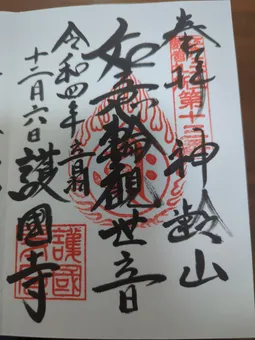 奉拝 神齡山
如意輪觀世音
令和四年
十二月六日 護國寺
第十三
護國